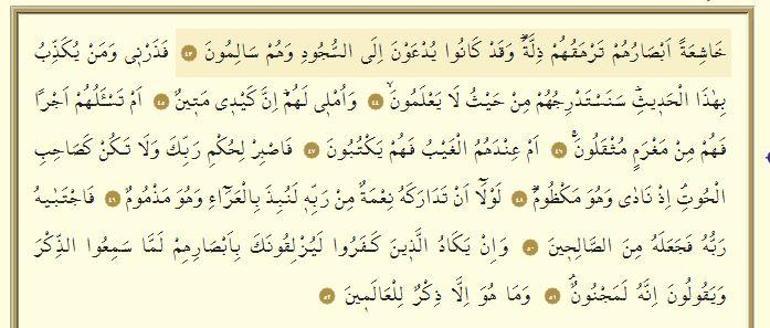 خَاشِعَةً اَبْصَارُهُمْ تَرْهَقُهُمْ ذِلَّةٌۜ وَقَدْ كَانُوا يُدْعَوْنَ اِلَى السُّجُودِ وَهُمْ سَالِمُونَ ﴿٤٣﴾ فَذَرْن۪ي وَمَنْ يُكَذِّبُ
بِهٰذَا الْحَد۪يثِۜ سَنَسْتَدْرِجُهُمْ مِنْ حَيْثُ لَا يَعْلَمُونَۙ ﴿٤٤﴾ وَاُمْل۪ي لَهُمْۜ اِنَّ كَيْد۪ي مَت۪ينٌ ﴿٤٥﴾ اَمْ تَسْـَٔلُهُمْ اَجْرًا
فَهُمْ مِنْ مَغْرَمٍ مُثْقَلُونَۚ ﴿٤٦﴾ اَمْ عِنْدَهُمُ الْغَيْبُ فَهُمْ يَكْتُبُونَ ﴿٤٧﴾ فَاصْبِرْ لِحُكْمِ رَبِّكَ وَلَا تَكُنْ كَصَاحِبِ
الْحُوتِۢ اِذْ نَادٰى وَهُوَ مَكْظُومٌۜ ﴿٤٨﴾ لَوْلَٓا اَنْ تَدَارَكَهُ نِعْمَةٌ مِنْ رَبِّه۪ لَنُبِذَ بِالْعَرَٓاءِ وَهُوَ مَذْمُومٌ ﴿٤٩﴾ فَاجْتَبٰيهُ
رَبُّهُ فَجَعَلَهُ مِنَ الصَّالِح۪ينَ ﴿٥٠﴾ وَاِنْ يَكَادُ الَّذ۪ينَ كَفَرُوا لَيُزْلِقُونَكَ بِاَبْصَارِهِمْ لَمَّا سَمِعُوا الذِّكْرَ
وَيَقُولُونَ اِنَّهُ لَمَجْنُونٌۢ ﴿٥١﴾ وَمَا هُوَ اِلَّا ذِكْرٌ لِلْعَالَم۪ينَ ﴿٥٢﴾